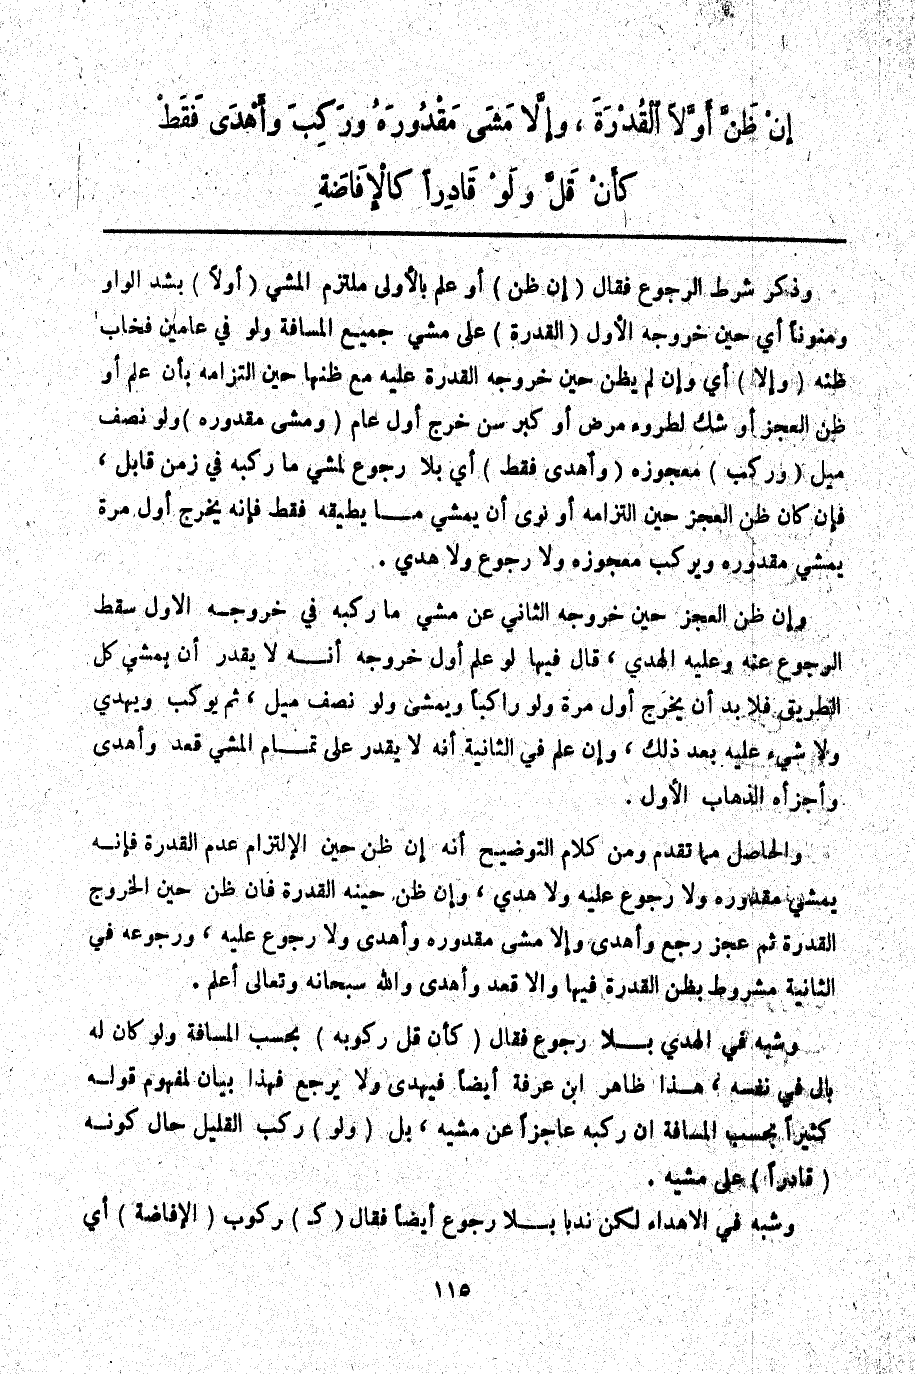 إنْ ظَنَّ أَوَّلاً ٱلْقُدْرَةَ ، وإلَّا مَشَى مَقْدُورَهُ ورَكِبَ وأَهْدَى فَقَطْ
كأنْ قَلَّ ولَوْ قَادِراً كالْإِفَاضَةِ
وذكر شرط الرجوع فقال ( إن ظن ) أو علم بالأولى ملتزم المشي ( أولاً ) بشد الواو
ومنوناً أي حين خروجه الأول ( القدرة ) على مشي جميع المسافة ولو في عامين فخاب
ظنه ( وإلا ) أي وإن لم يظن حين خروجه القدرة عليه مع ظنها حين التزامه بأن علم أو
ظن العجز أو شك لطروء مرض أو كبر سن خرج أول عام ( ومشى مقدوره )ولو نصف
ميل ( وركب ) معجوزه ( وأهدى فقط ) أي بلا رجوع لمشي ما ركبه في زمن قابل ،
فإن كان ظن العجز حين التزامه أو نوى أن يمشي مـــا يطيقه فقط فإنه يخرج أول مرة
يمشي مقدوره ويركب معجوزه ولا رجوع ولا هدي .
وإن ظن العجز حين خروجه الثاني عن مشي ما ركبه في خروجـه الاول سقط
الرجوع عنه وعليه الهدي ، قال فيها لو علم أول خروجه أنـــه لا يقدر أن يمشي كل
الطريق فلا بد أن يخرج أول مرة ولو راكباً ويمشي ولو نصف ميل ، ثم يركب ويهدي
ولا شيء عليه بعد ذلك ، وإن علم في الثانية أنه لا يقدر على تمـــام المشي قعد وأهدى
وأجزأه الذهاب الأول .
والحاصل مما تقدم ومن كلام التوضيح أنه إن ظن حين الإلتزام عدم القدرة فإنـه
يمشي مقدوره ولا رجوع عليه ولا هدي ، وإن ظن حينه القدرة فان ظن حين الخروج
القدرة ثم عجز رجع وأهدى وإلا مشى مقدوره وأهدى ولا رجوع عليه ، ورجوعه في
الثانية مشروط بظن القدرة فيها والا قعد وأهدى والله سبحانه وتعالى أعلم .
وشبه في الهدي بـــلا رجوع فقال ( كأن قل ركوبه ) بحسب المسافة ولو كان له
بال في نفسه ، هـذا ظاهر ابن عرفة أيضاً فيهدى ولا يرجع فهذا بيان لمفهوم قولـه
كثيراً بحسب المسافة ان ركبه عاجزاً عن مشيه ، بل ( ولو ) ركب القليل حال كونـه
( قادراً ) على مشيه .
وشبه في الاهداء لكن ندبا بـــلا رجوع أيضاً فقال ( كـ ) ركوب ( الإفاضة ) أي
١١٥